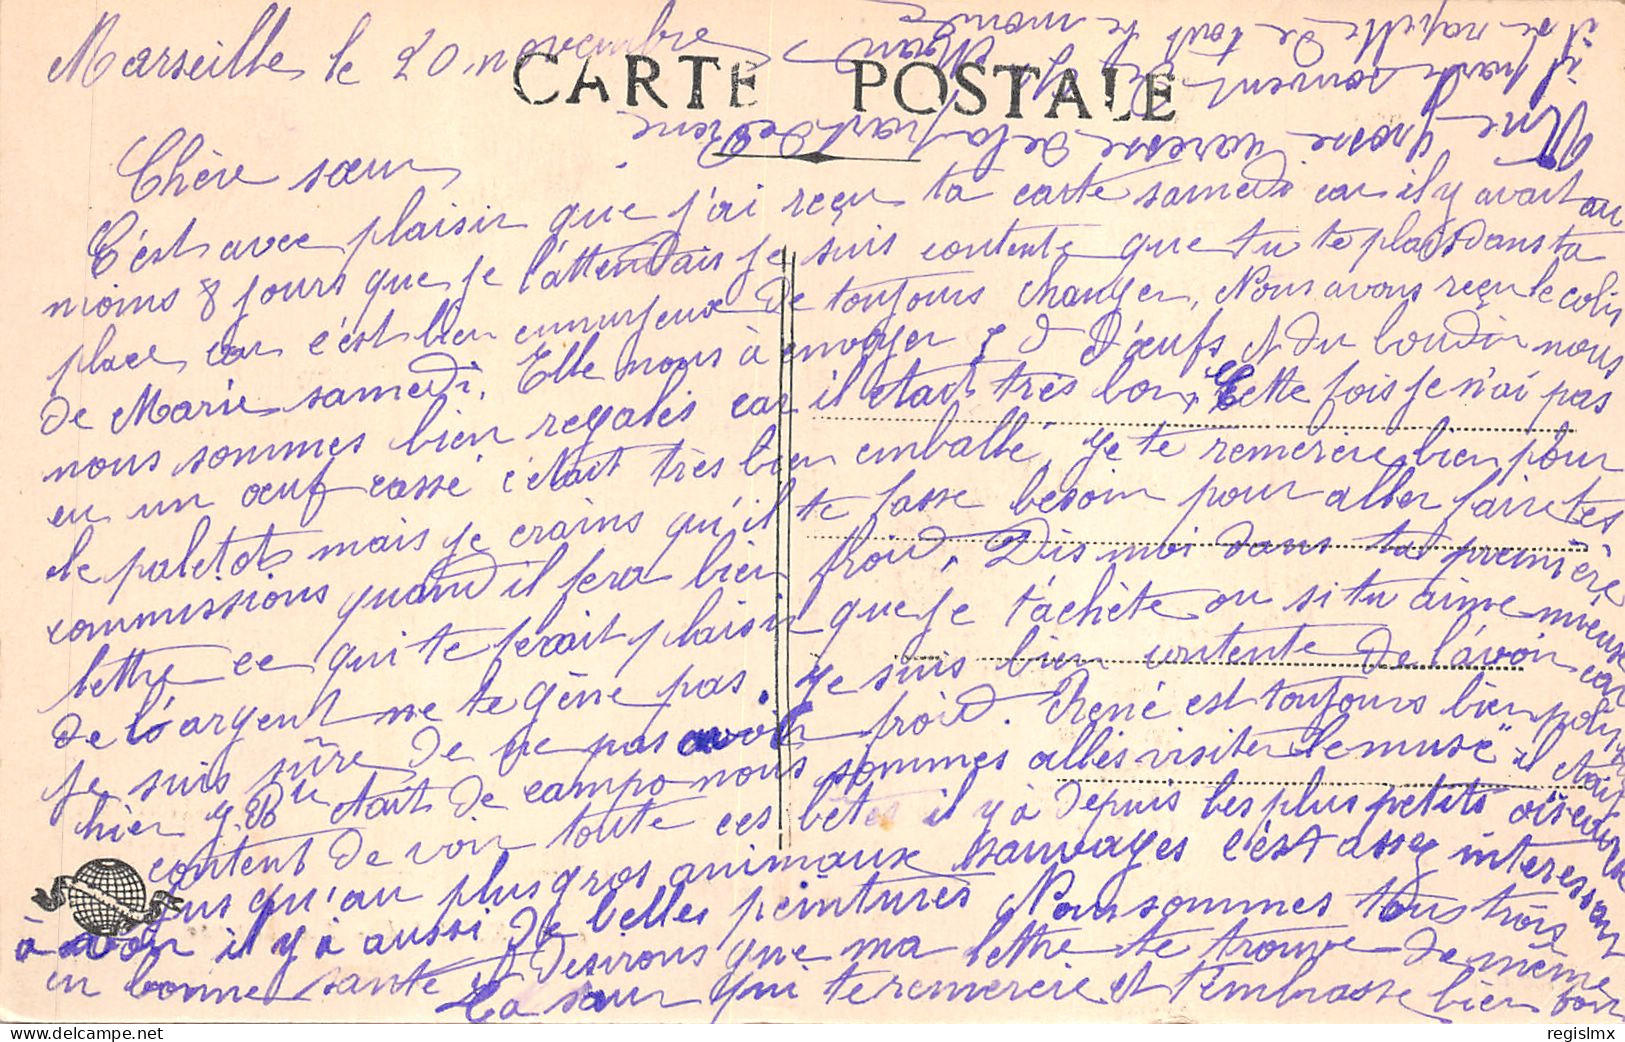 Marseille le 20 novembre
CARTE POSTALE
Chère sœur
C'est avec plaisir que j'ai reçu ta carte samedi car il y avait au
moins 8 jours que je l'attendais je suis contente que tu te plais dans ta
place car c'est bien ennuyeux de toujours changer. Nous avons reçu le colis
de Marie samedi. Elle nous à envoyer d'œufs et du boudin nous
nous sommes bien regalés car il etait très bon, Cette fois je n'ai pas
eu un œuf cassé c'etait très bien emballé. Je te remercie bien pour
le paletot mais je crains qu'il te fasse besoin pour aller faire tes
commissions quand il fera bien froid. Dis moi dans ta première
lettre ce qui te ferait plaisir que je t'achète ou si tu aime mieux
de l'argent ne te gène pas. Je suis bien contente de l'avoir car
je suis sûre de ne pas avoir froid. René est toujours bien poli
hier etait de campo nous sommes allés visiter le musé il etait
content de voir toute ces bêtes il y à depuis les plus petits oiseaux
jus qu'au plus gros animaux sauvages c'est assez interessant
à voir il y à aussi de belles peintures Nous sommes tous trois
en bonne santé et desirons que ma lettre te trouve de même
Ta sœur qui te remercie et t'embrasse bien fort
Une grosse caresse de la part de René
il parle souvent
il se rapelle de tout le monde
regislmx